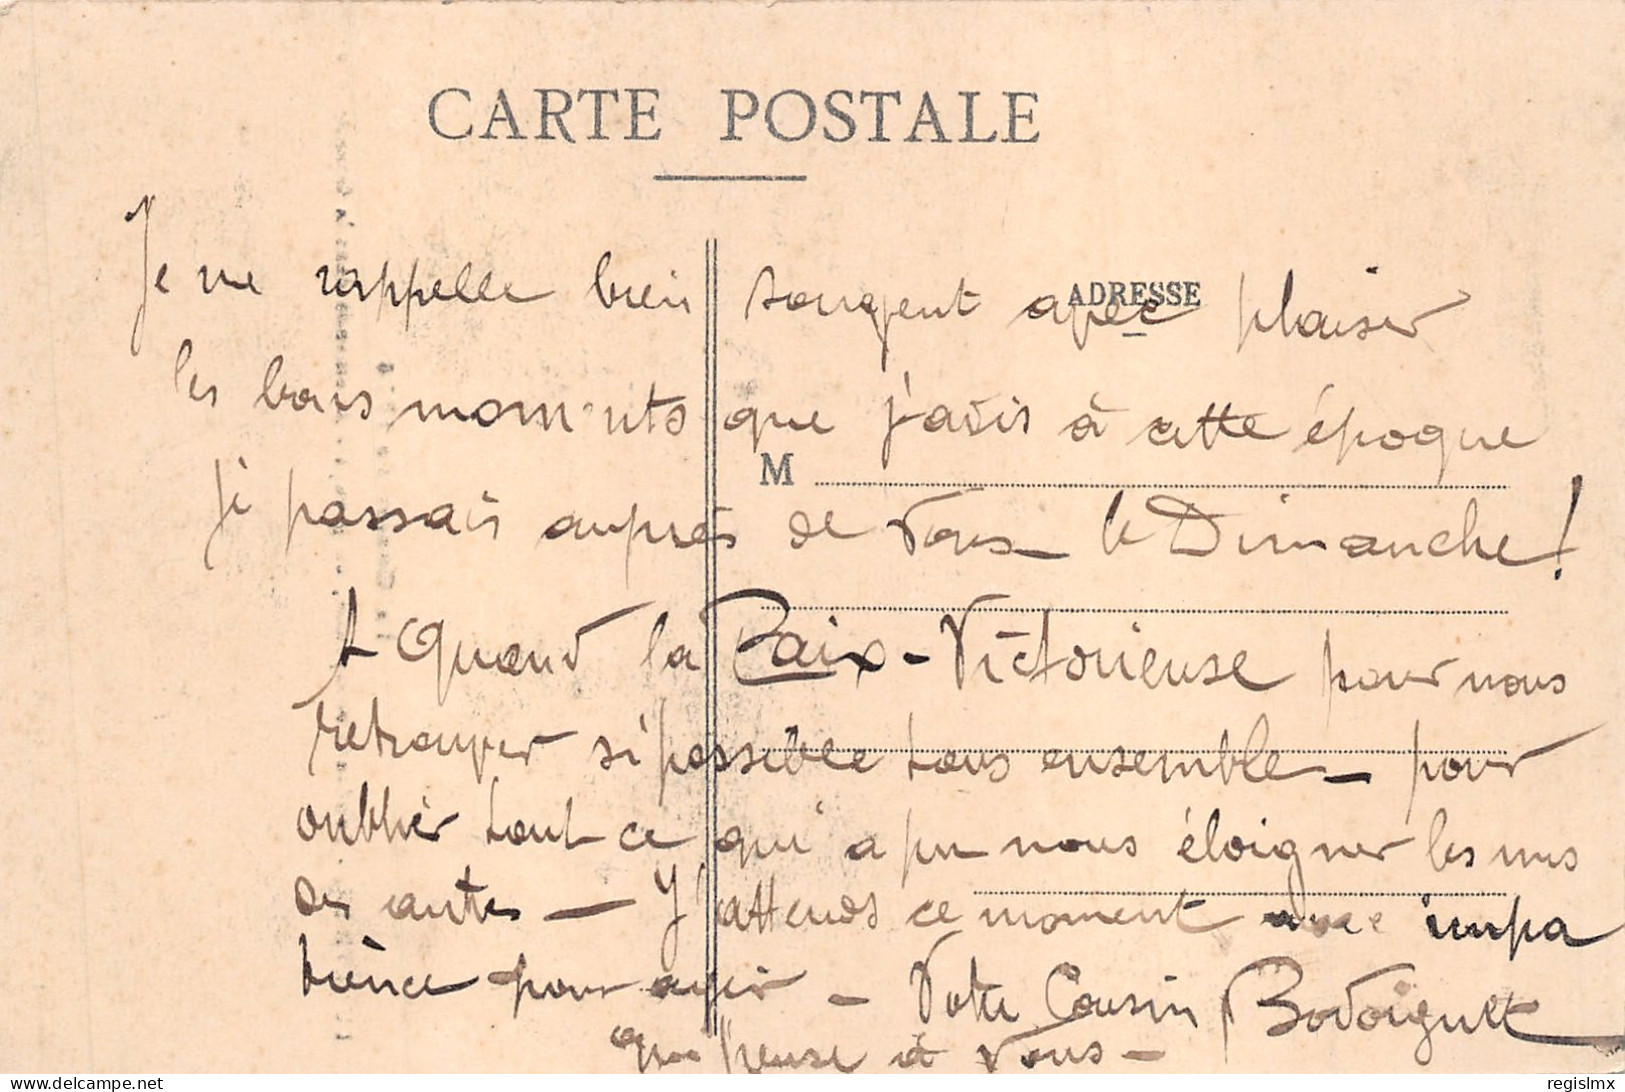 CARTE POSTALE
Je me rappelle bien souvent avec plaisir
ADRESSE
les bons moments que j'avais à cette époque
M
Je passais auprès de vous le Dimanche !
A Quand la Paix-Victorieuse pour nous
retrouver si possible tous ensemble - pour
oublier tout ce qui a pu nous éloigner les uns
des autres - J'attends ce moment avec impa
tience pour agir - Votre Cousin
qui pense à vous -
delcampe.net
regislmx